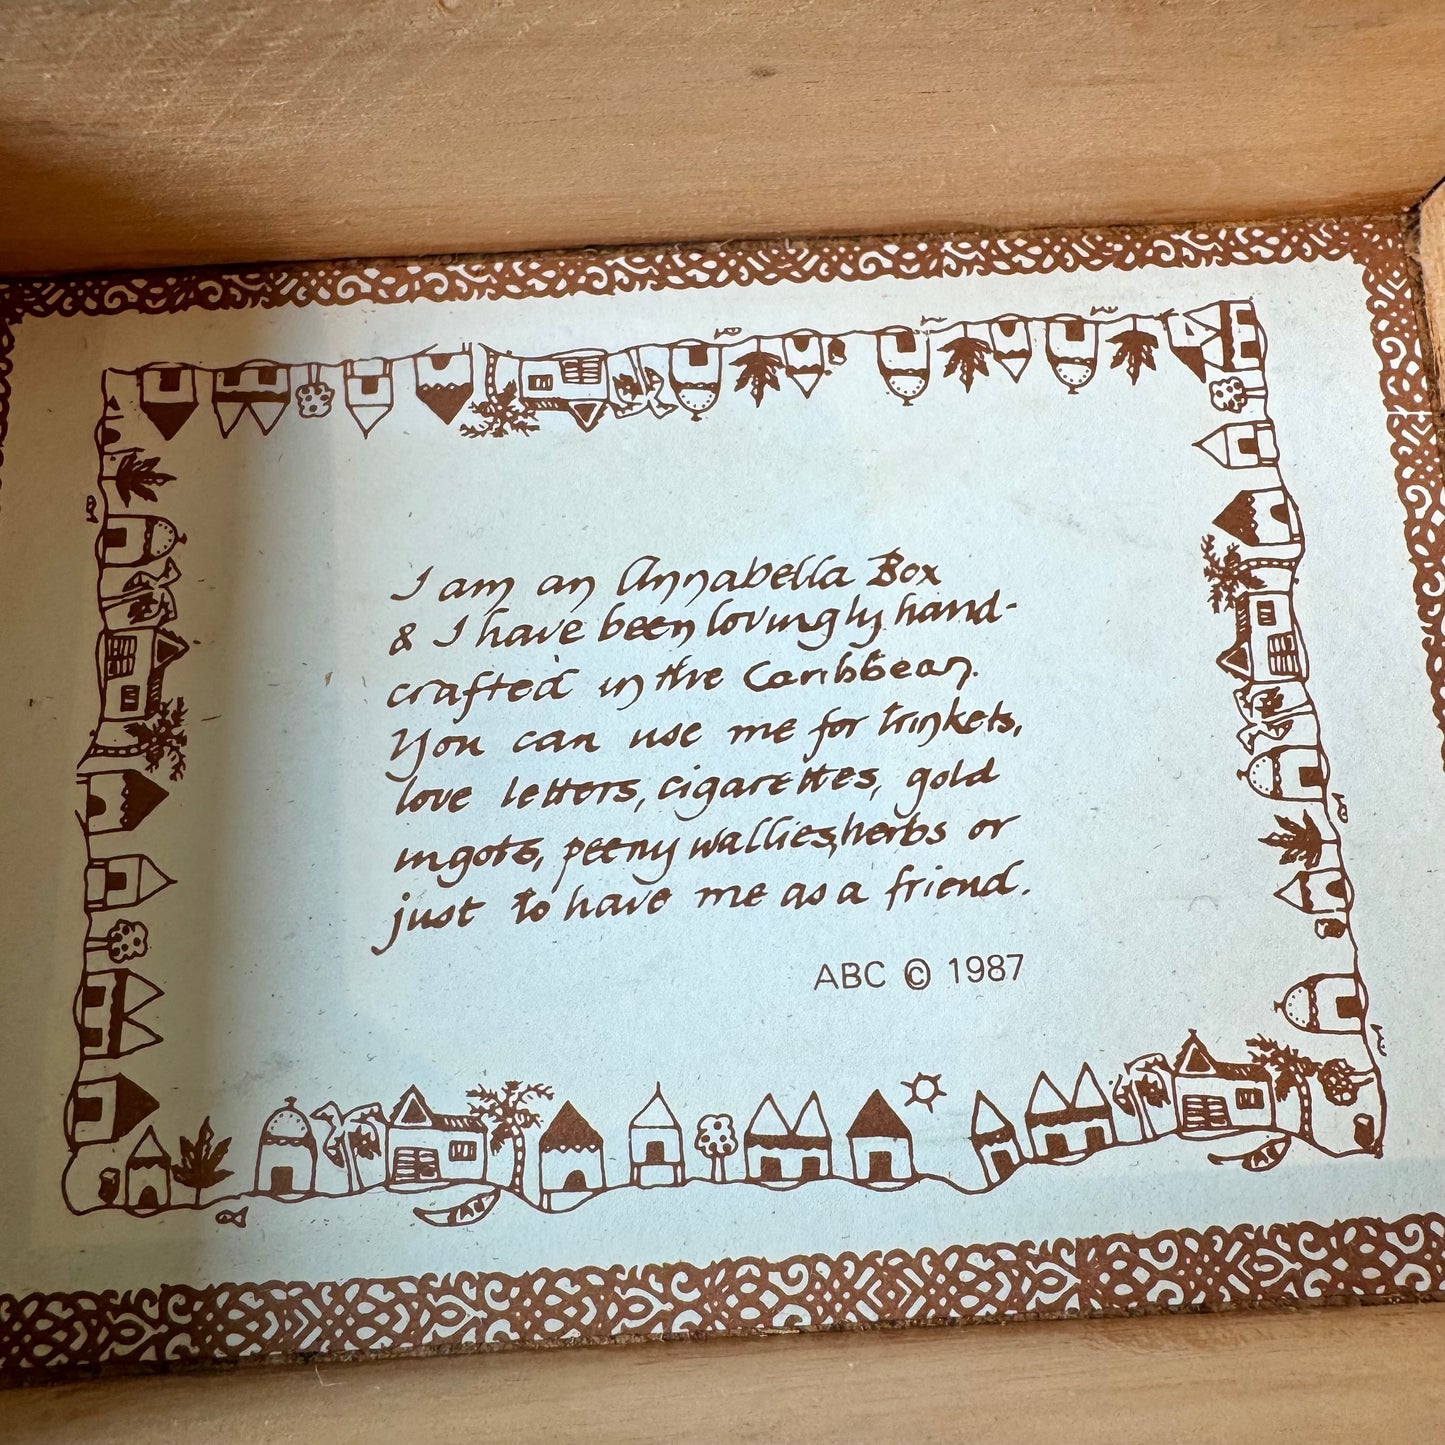 I am an Annabella Box
& I have been lovingly hand-
crafted in the Caribbean.
You can use me for trinkets,
love letters, cigarettes, gold
ingots, peeny wallies, herbs or
just to have me as a friend.
ABC © 1987